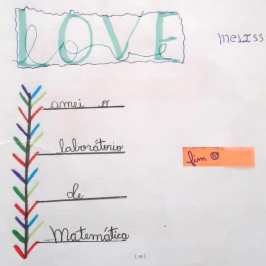 LOVE
love
amei o
laboratorio
de
Matemática
fim